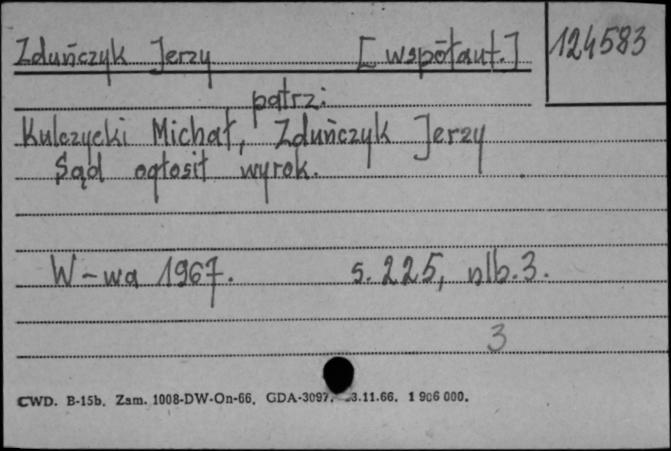 Zduńczyk Jerzy [współaut.] 124583
patrz:
Kulczycki Michał, Zduńczyk Jerzy
Sąd ogłosił wyrok.
W-wa 1967. s. 225, nlb. 3.
3
CWD. B-15b. Zam. 1008-DW-On-66. GDA-3097. 3.11.66. 1 906 000.